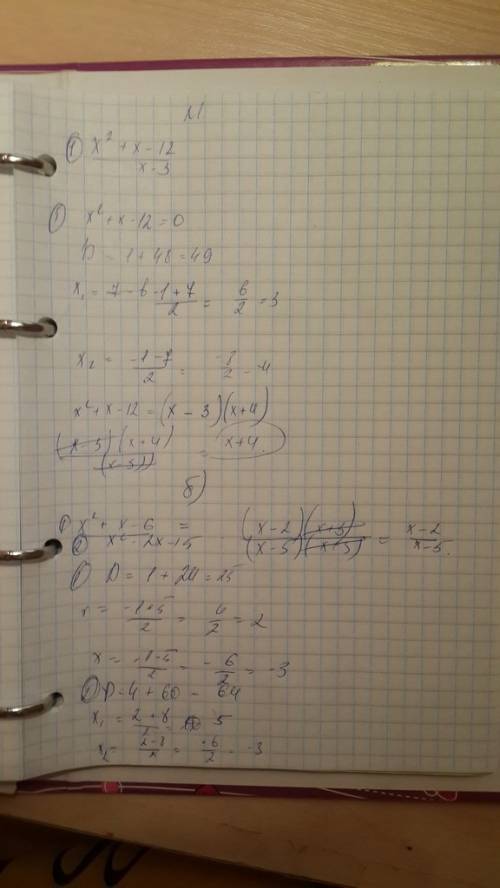 ① x² + x - 12
x - 3
① x² + x - 12 = 0
D = 1 + 48 = 49
x₁ = 7 - 6 -1 + 7 / 2 = 6/2 = 3
x₂ = -1 - 7 / 2 = -8/2 - 4
x² + x - 12 = (x - 3)(x + 4)
(x - 3)(x + 4) / (x - 3) = x + 4.
б)
① x² + x - 6 = (x - 2)(x + 3) / (x - 5)(x + 3) = x - 2 / x - 5.
② x² - 2x - 15
① D = 1 + 24 = 25
x = -1 + 5 / 2 = 4/2 = 2
x = -1 - 5 / 2 = - 6/2 = -3
② D = 4 + 60 = 64
x₁ = 2 + 8 / 2 = 5
x₂ = 2 - 8 / 2 = -6/2 = -3